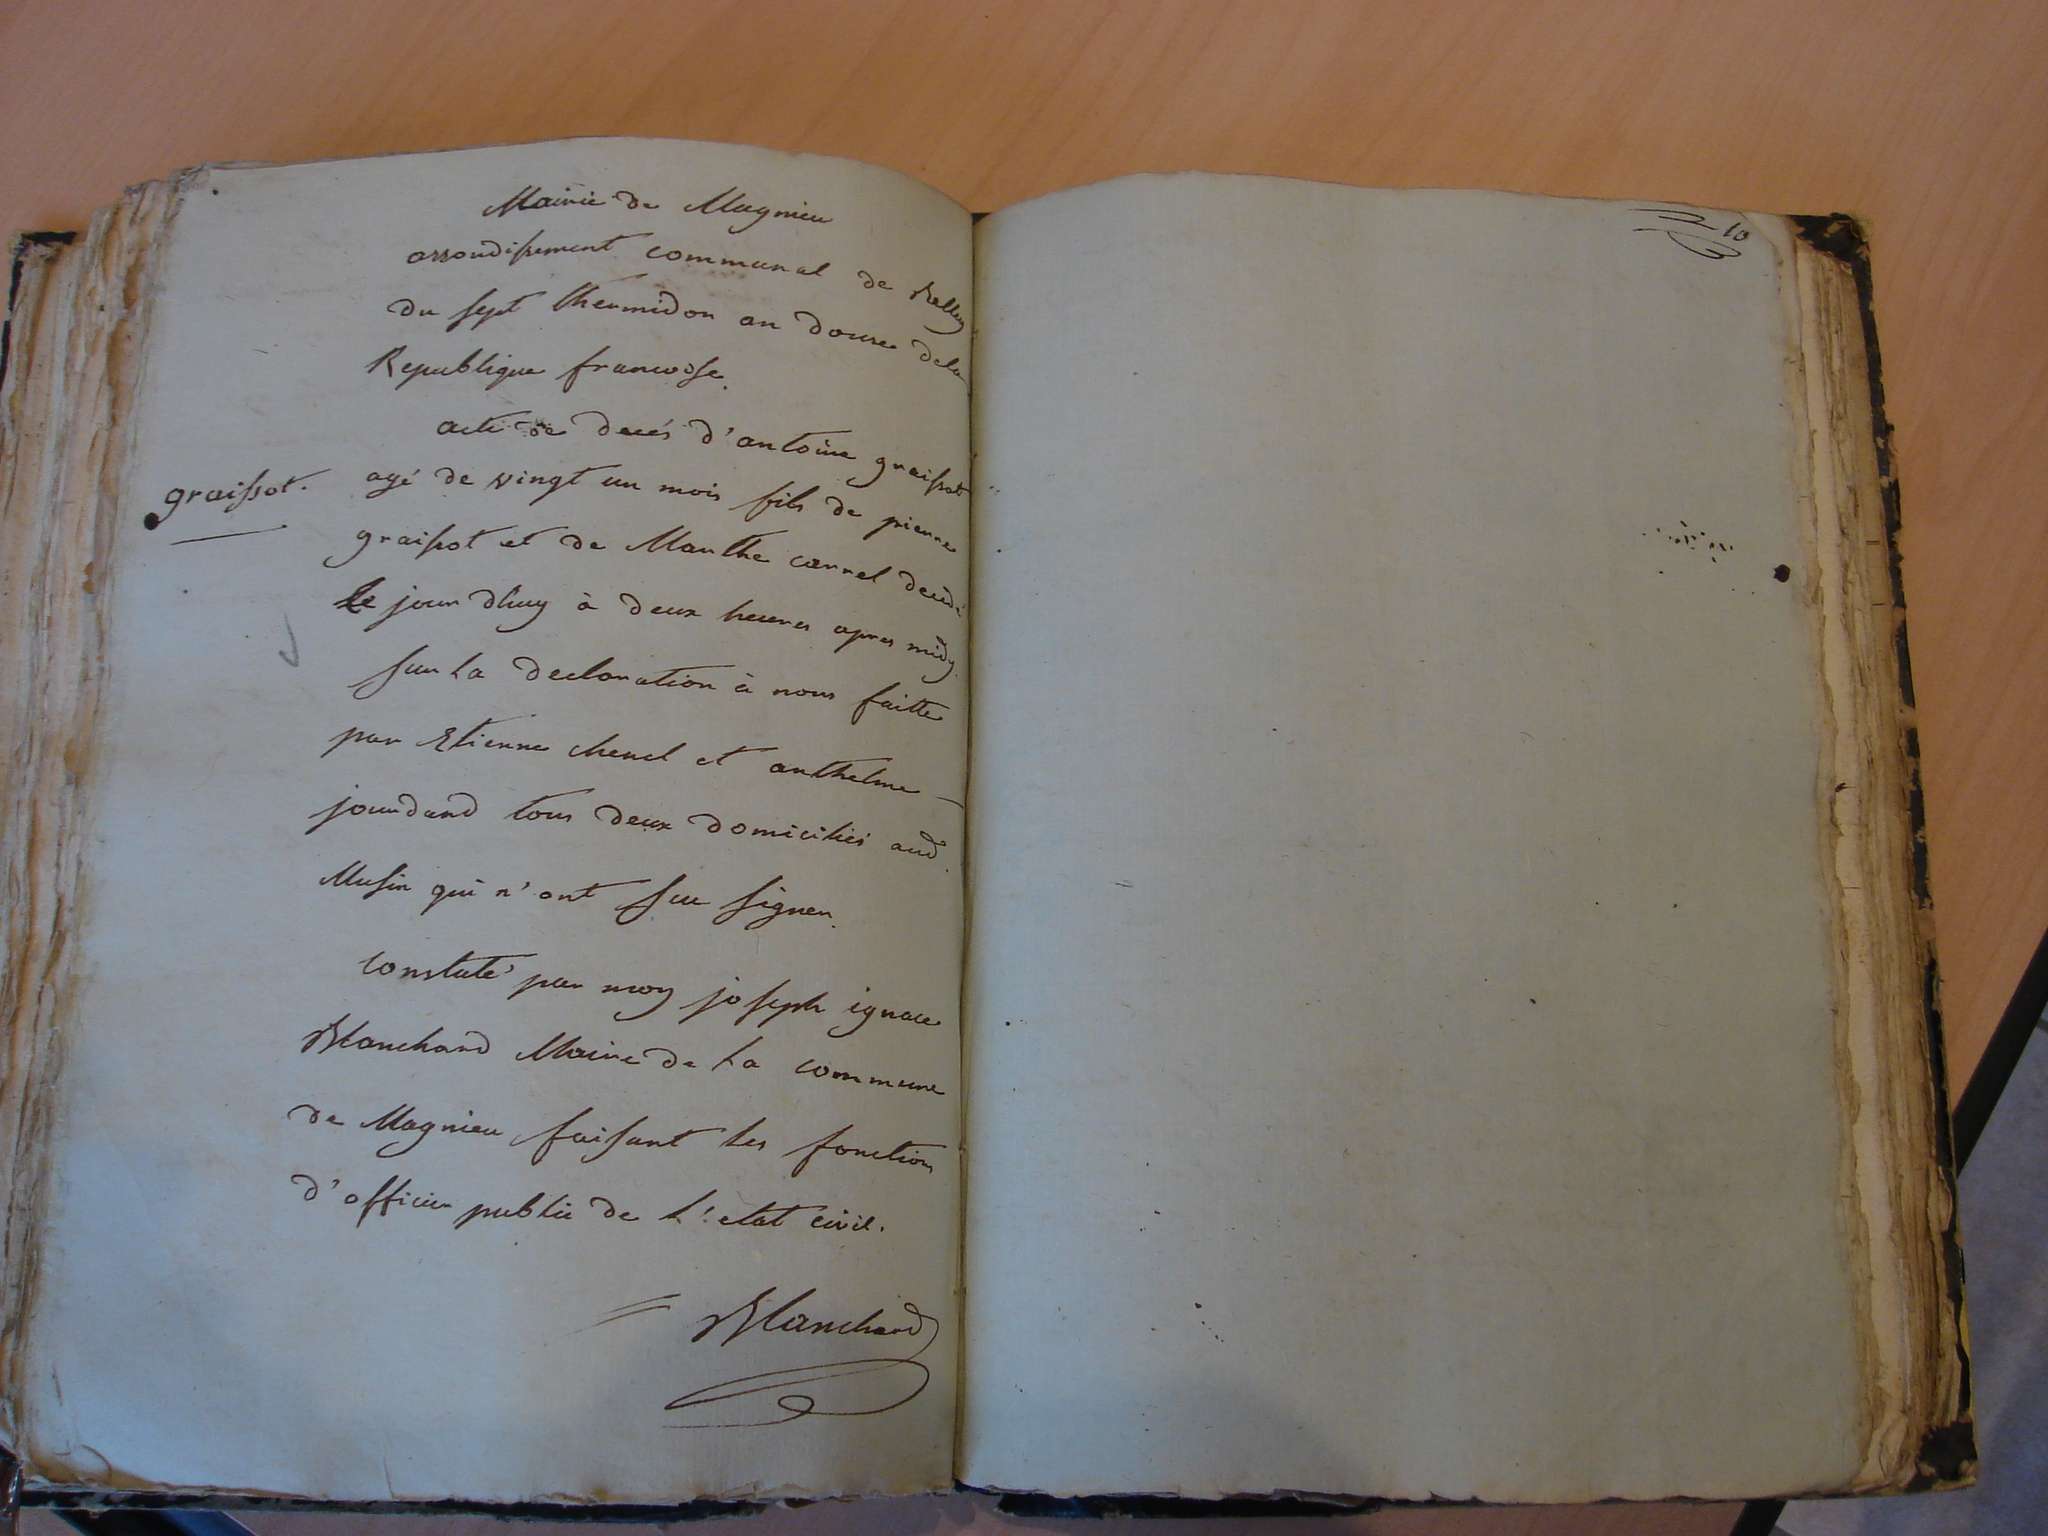 Mairie de Magnieu
arrondissement communal de Belley
du sept thermidor an douze dela
Republique francoise.
acte de decés d'antoine graissot
graissot.
agé de vingt un mois fils de pierre
graissot et de Marthe carrel decedé
le jourdhuy à deux heures apres midy
sur la declaration à nous faitte
par Etienne et anthelme
jourdand tous deux domiciliés aud.
Musin qui n'ont sçu signer.
Constaté par moy joseph ignace
Blanchard Maire de la commune
de Magnieu faisant les fonctions
d'officier public de l'etat civil.
Blanchard
10